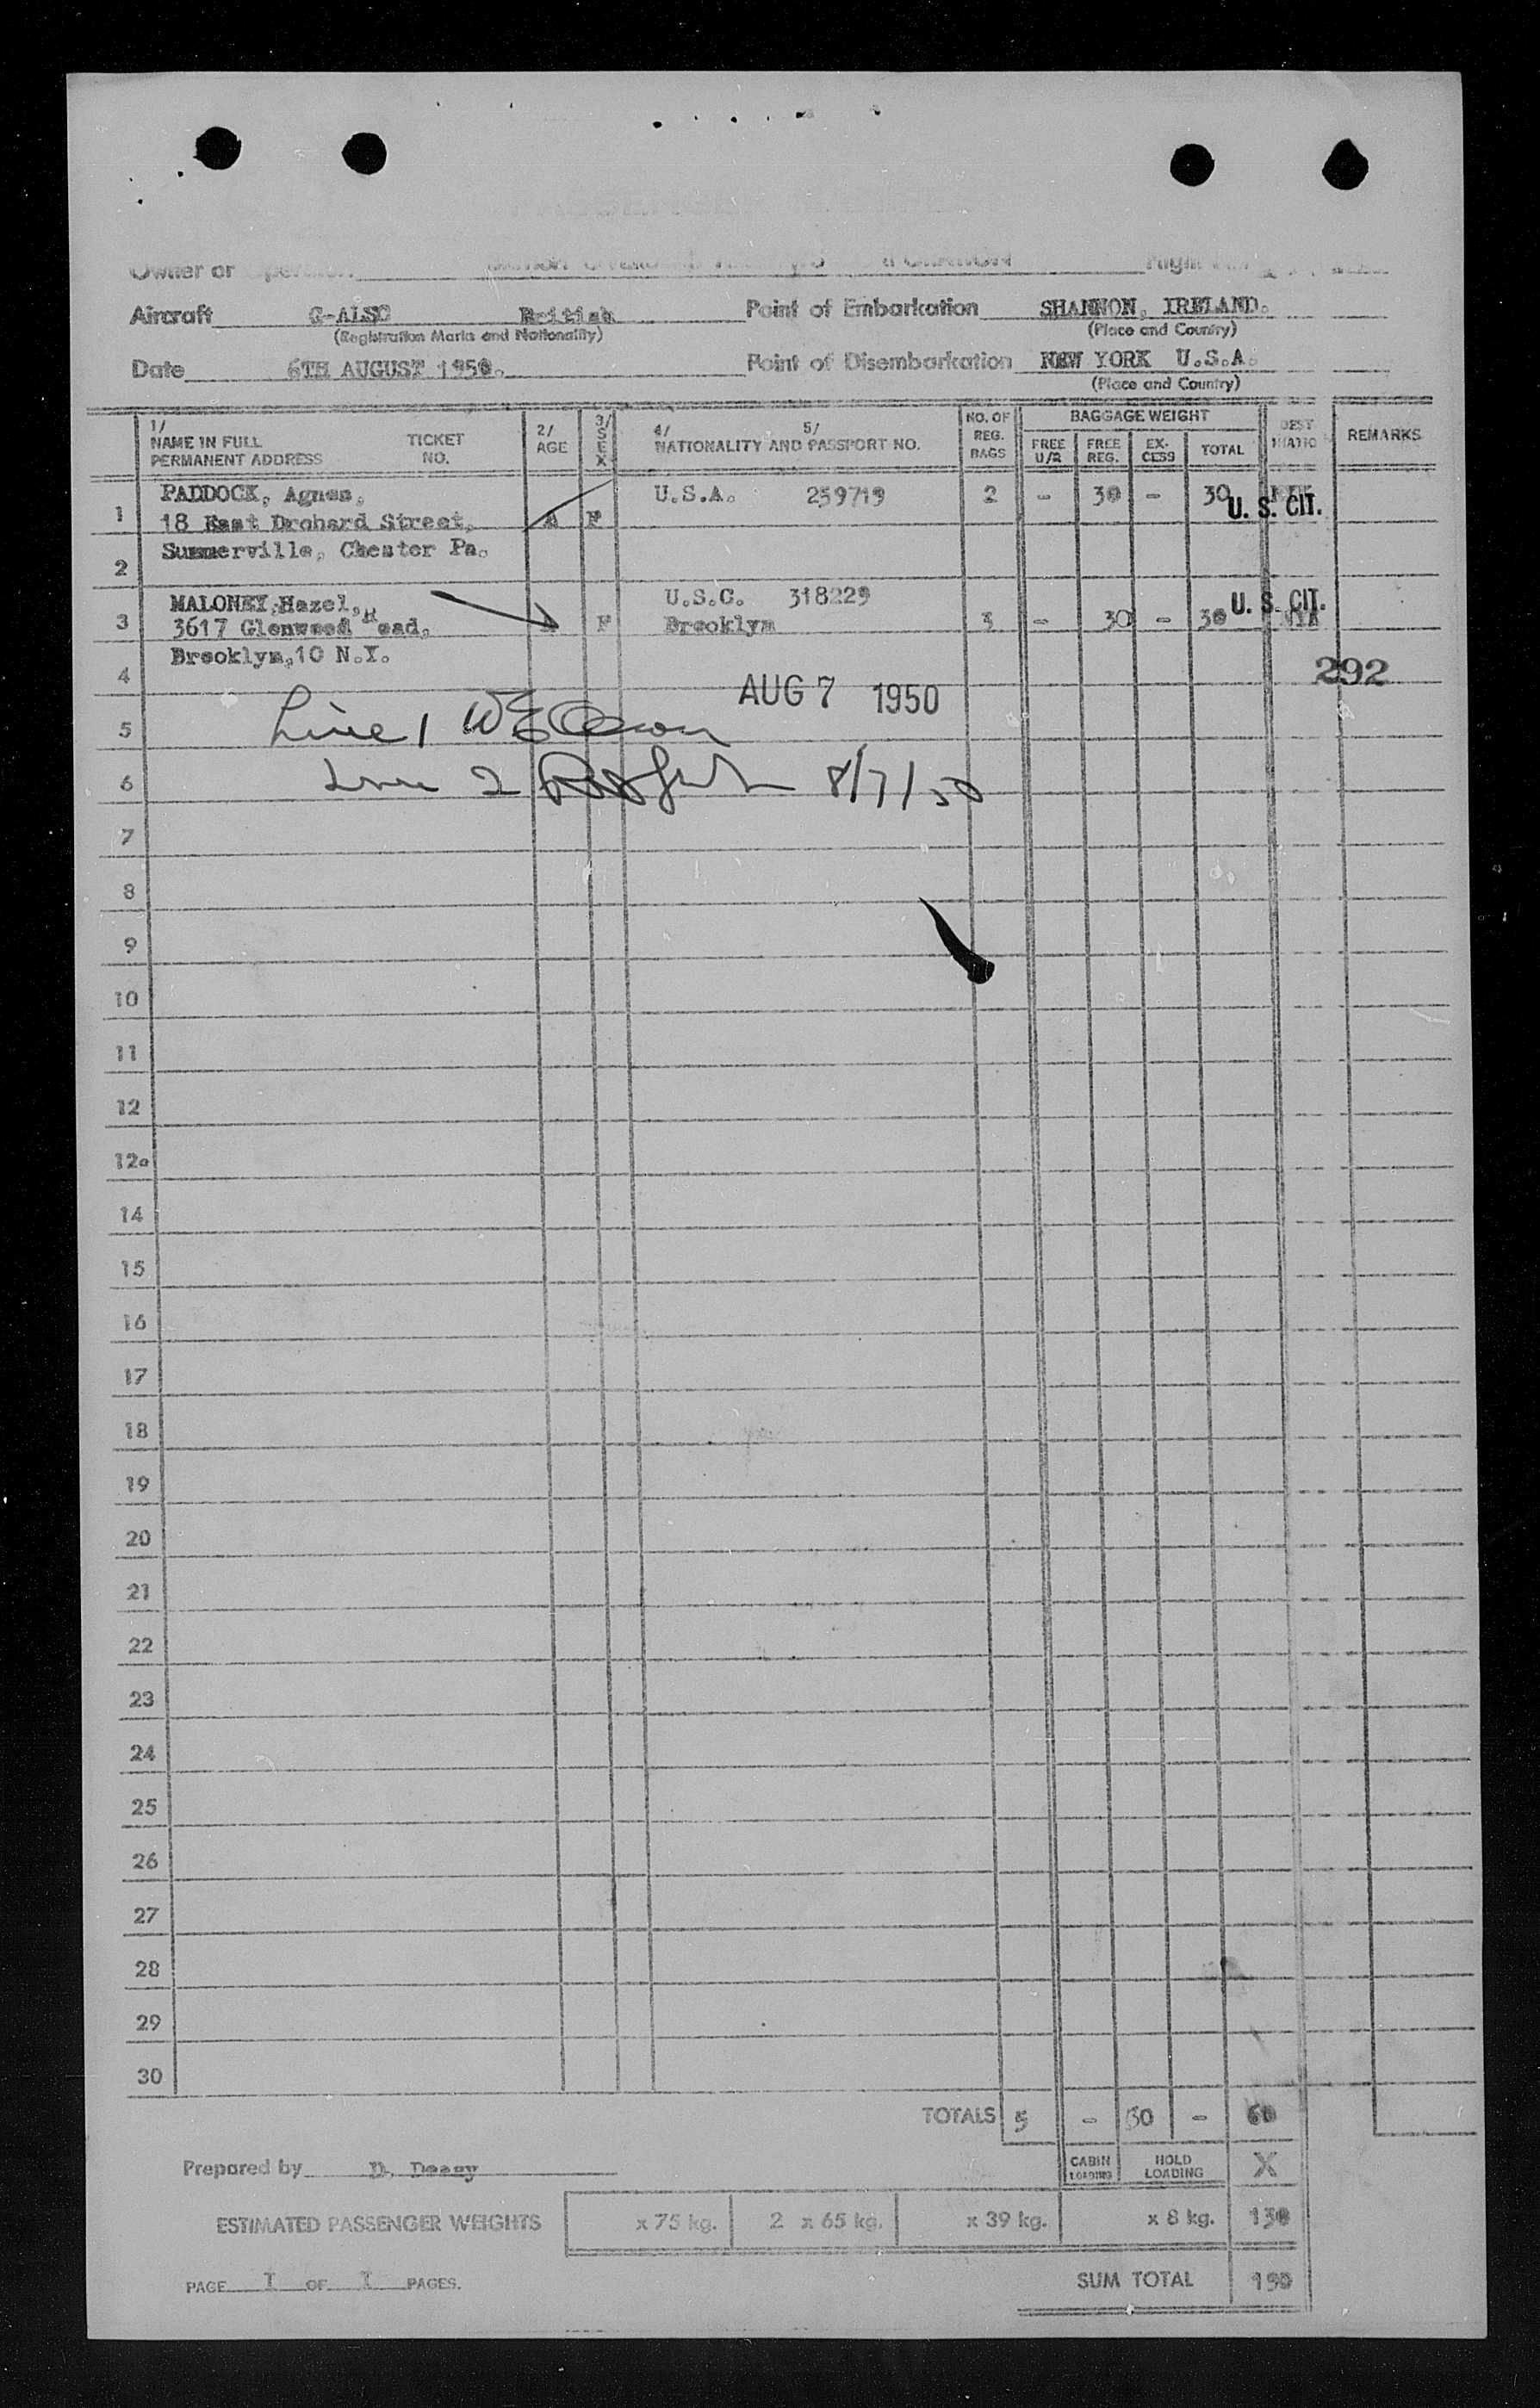 Owner or Operator
Aircraft G-ALSC British Point of Embarkation SHANNON, IRELAND.
(Registration Marks and Nationality) (Place and Country)
Date 6TH AUGUST 1950. Point of Disembarkation NEW YORK U.S.A.
(Place and Country)
1/ NAME IN FULL PERMANENT ADDRESS TICKET NO. 2/ AGE 3/ SEX 4/ 5/ NATIONALITY AND PASSPORT NO. NO. OF REG. BAGS BAGGAGE WEIGHT FREE U/R FREE REG. EX-CESS TOTAL DEST INATIO REMARKS
PADDOCK, Agnes, U.S.A. 259719 2 - 30 - 30
1 18 East Drohard Street, A F U. S. CIT.
Summerville, Chester Pa.
2
MALONEY, Hazel, U.S.C. 318229 U. S. CIT.
3 3617 Glenwood Road, F Brooklym 3 - 30 - 30 NYK
Brooklym, 10 N.Y. 292
4
AUG 7 1950
5 Line 1
6 Line 2 8/7/50
7
8
9
10
11
12
12a
14
15
16
17
18
19
20
21
22
23
24
25
26
27
28
29
30
TOTALS 5 - 60 - 60
Prepared by D. Deasy CABIN LOADING HOLD LOADING X
ESTIMATED PASSENGER WEIGHTS x 75 kg. 2 x 65 kg. x 39 kg. x 8 kg. 130
PAGE 1 OF 1 PAGES. SUM TOTAL 190